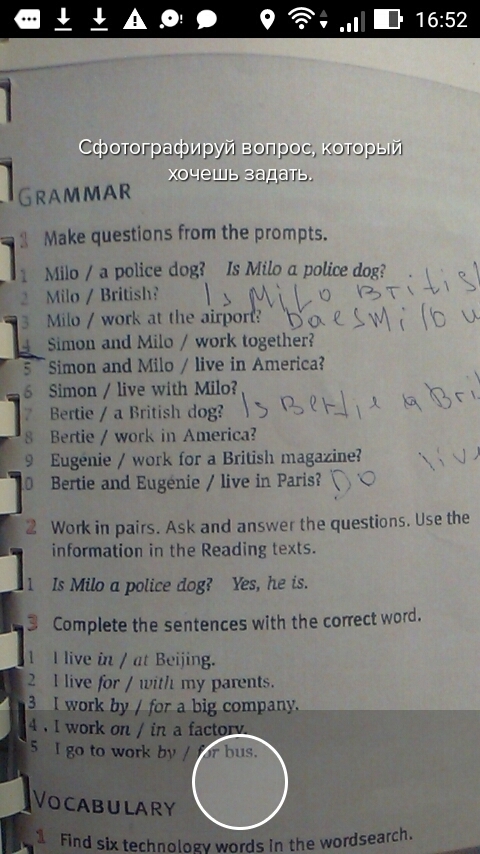 16:52
Сфотографируй вопрос, который
хочешь задать.
GRAMMAR
1 Make questions from the prompts.
1 Milo / a police dog? Is Milo a police dog?
2 Milo / British? Is Milo Britis
3 Milo / work at the airport? Does Milo w
4 Simon and Milo / work together?
5 Simon and Milo / live in America?
6 Simon / live with Milo?
7 Bertie / a British dog? Is Bertie a Bri
8 Bertie / work in America?
9 Eugenie / work for a British magazine?
10 Bertie and Eugénie / live in Paris? Do live
2 Work in pairs. Ask and answer the questions. Use the
information in the Reading texts.
1 Is Milo a police dog? Yes, he is.
3 Complete the sentences with the correct word.
1 I live in / at Beijing.
2 I live for / with my parents.
3 I work by / for a big company.
4. I work on / in a factory.
5 I go to work by / for bus.
VOCABULARY
1 Find six technology words in the wordsearch.